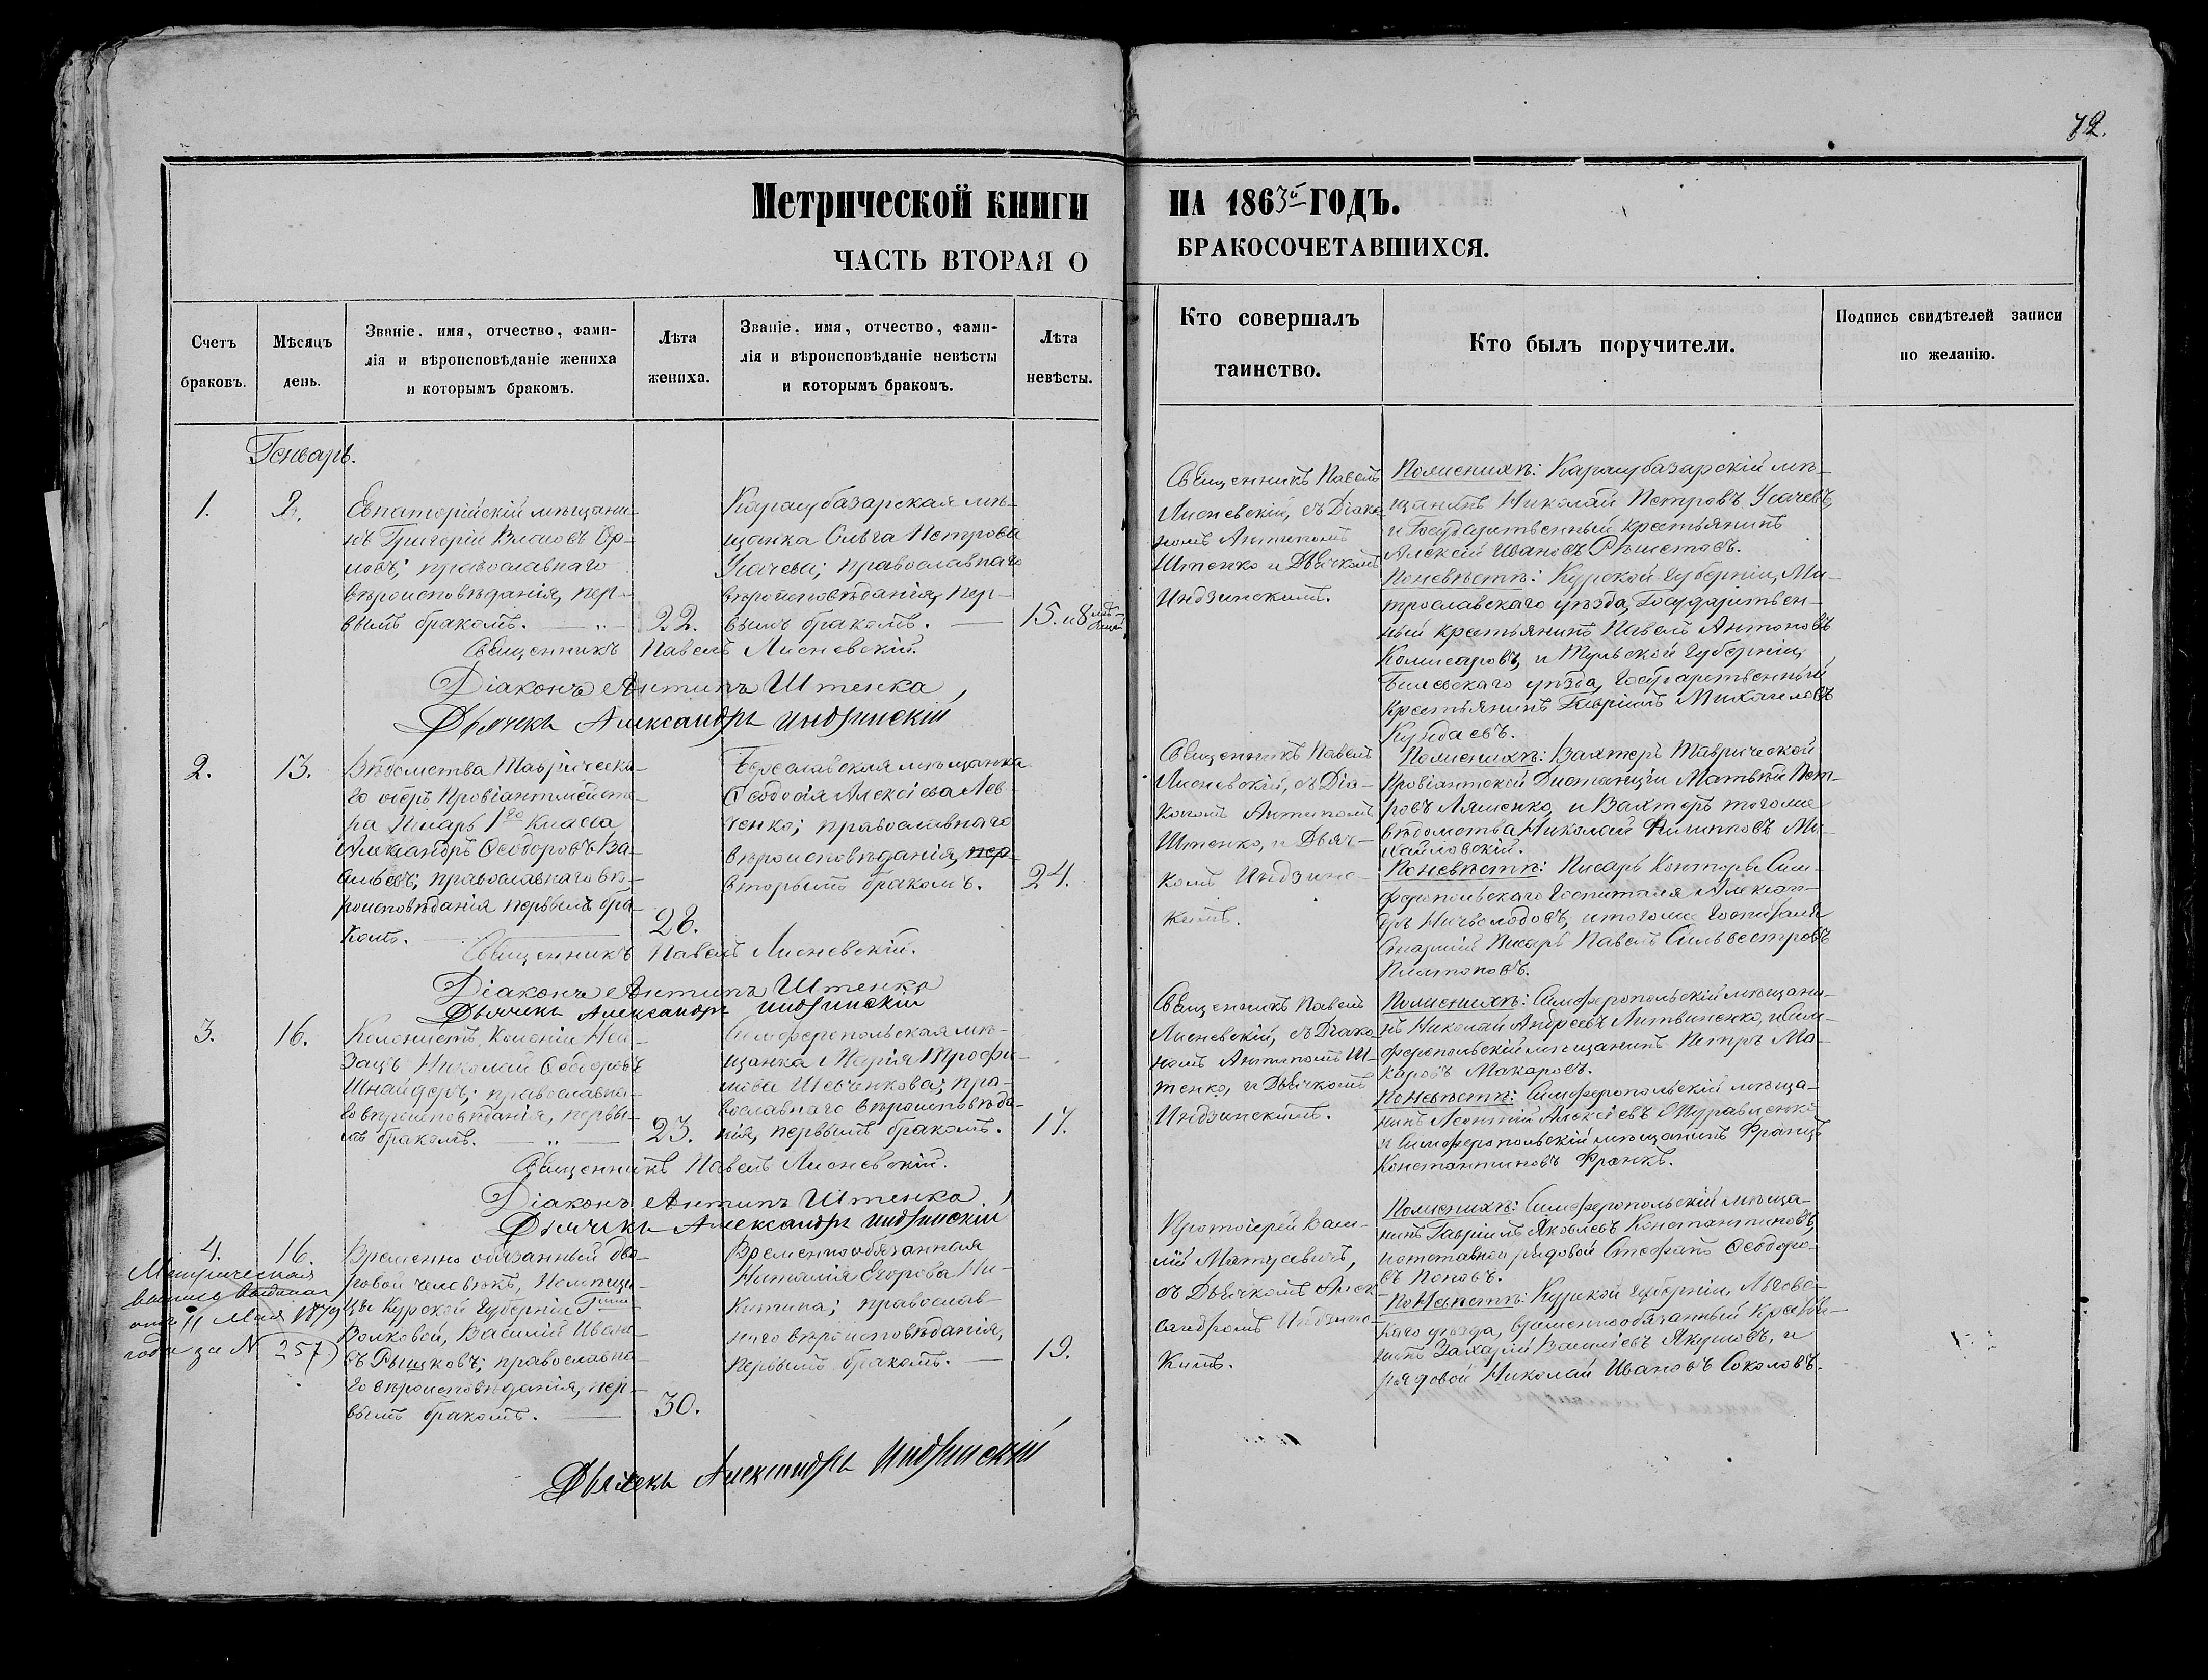 72.
Метрической книги
НА 1863й ГОДЪ.
ЧАСТЬ ВТОРАЯ О
БРАКОСОЧЕТАВШИХСЯ.
Счетъ
браковъ.
Мѣсяцъ
день.
Званіе, имя, отчество, фами-
лія и вѣроисповѣданіе жениха
и которымъ бракомъ.
Лѣта
жениха.
Званіе, имя, отчество, фами-
лія и вѣроисповѣданіе невѣсты
и которымъ бракомъ.
Лѣта
невѣсты.
Кто совершалъ
таинство.
Кто былъ поручители.
Подпись свидѣтелей записи
по желанію.
Генварь.
1.
Евпаторійскій мѣщани-
нъ Григорій Власовъ Ор-
ловъ; православнаго
вѣроисповѣданія, пер-
вымъ бракомъ.
22.
Карасубазарская мѣ-
щанка Ольга Петрова
Усачева; православнаго
вѣроисповѣданія, пер-
вымъ бракомъ.
15. и 8
Священникъ Павелъ
Лисневскій, съ Діако-
номъ Антипомъ
Штенко и Дьячкомъ
Индзинскимъ.
По женихѣ: Карасубазарскій мѣ-
щанинъ Николай Петровъ Усачевъ,
и Государственный крестьянинъ
Алексѣй Ивановъ Рѣшетовъ.
По невѣстѣ: Курской Губерніи, Ми-
трославскаго уѣзда, Государствен-
ный крестьянинъ Павелъ Антоновъ
Комисаровъ, и Тульской Губерніи,
Бѣлевскаго уѣзда, Государственный
крестьянинъ Гавріилъ Михайловъ
Священникъ Павелъ Лисневскій.
Діаконъ Антипъ Штенко
Дьячекъ Александръ Индзинскій
2.
13.
Вѣдомства Тавричес­ка-
го Оберъ Провіантмейсте-
ра Писарь 1го Класса
Александръ Ѳеодоровъ Ва-
сильевъ; православнаго вѣ-
роисповѣданія первымъ бра-
комъ.
28.
Бериславская мѣщанка
Ѳеодосія Алексѣева Лев-
ченко; православнаго
вѣроисповѣданія, пер-
вторымъ бракомъ.
24.
Священникъ Павелъ
Лисневскій, съ Діа-
кономъ Антипомъ
Штенко, и Дьяч-
комъ Индзинс-
кимъ.
По женихѣ: Вахтеръ Таврической
Провіантской Дистанціи Матвѣй Пет-
ровъ Ляшенко, и Вахтеръ тогоже
вѣдомства Николай Филиповъ Ми-
хайловскій.
По невѣстѣ: Писарь Конторы Сим-
феропольскаго Госпиталя Алексан-
дръ и тогоже Госпиталя
Старшій Писарь Павелъ Сильвестровъ
Платоновъ.
Священникъ Павелъ Лисневскій.
Діаконъ Антипъ Штенко
Дьячекъ Александръ Индзинскій
3.
16.
Колонистъ Колоніи Ней-
зацъ Николай Ѳеодоровъ
Шнайдеръ; православна-
го вѣроисповѣданія, первы-
мъ бракомъ.
23.
Симферопольская мѣ-
щанка Марія Трофи-
мова Шевченкова; пра-
вославнаго вѣроисповѣда-
нія, первымъ бракомъ.
17.
Священникъ Павелъ
Лисневскій, съ Діако-
номъ Антипомъ Ш-
тенко, и Дьячкомъ
Индзинскимъ.
По женихѣ: Симферопольскій мѣщани-
нъ Николай Андреевъ Литвиненко, и Сим-
феропольскій мѣщанинъ Петръ Ма-
каровъ Макаровъ.
По невѣстѣ: Симферопольскій мѣща-
нинъ Леонтій Алексѣевъ Журавленко
и Симферопольскій мѣщанинъ Францъ
Константиновъ Франкъ.
Священникъ Павелъ Лисневскій.
Діаконъ Антипъ Штенко
Дьячекъ Александръ Индзинскій
4.
16.
Метрическая
выпись выдана
отъ 11 Мая 1879
года за № 257)
Временно обязанный дво-
ровой человѣкъ, Помѣщи-
цы Курской Губерніи Гжи
Волковой, Василій Ивано-
въ Рышковъ; православна-
го вѣроисповѣданія, пер-
вымъ бракомъ.
30.
Временнообязанная
Наталія Егорова Ни-
китина; православ-
наго вѣроисповѣданія,
первымъ бракомъ.
19.
Протоіерей Васи-
лій Матусевичъ,
съ Дьячкомъ Алек-
сандромъ Индзинс-
кимъ.
По женихѣ: Симферопольскій мѣща-
нинъ Гавріилъ Яковлевъ Константиновъ,
и отставной рядовой Стефанъ Ѳеодоро-
въ Поповъ.
По Невѣстѣ: Курской Губерніи Льговс-
каго уѣзда, временнообязанный крестья-
нинъ Захарій Васильевъ Якушовъ, и
рядовой Николай Ивановъ Соколовъ.
Дьячекъ Александръ Индзинскій